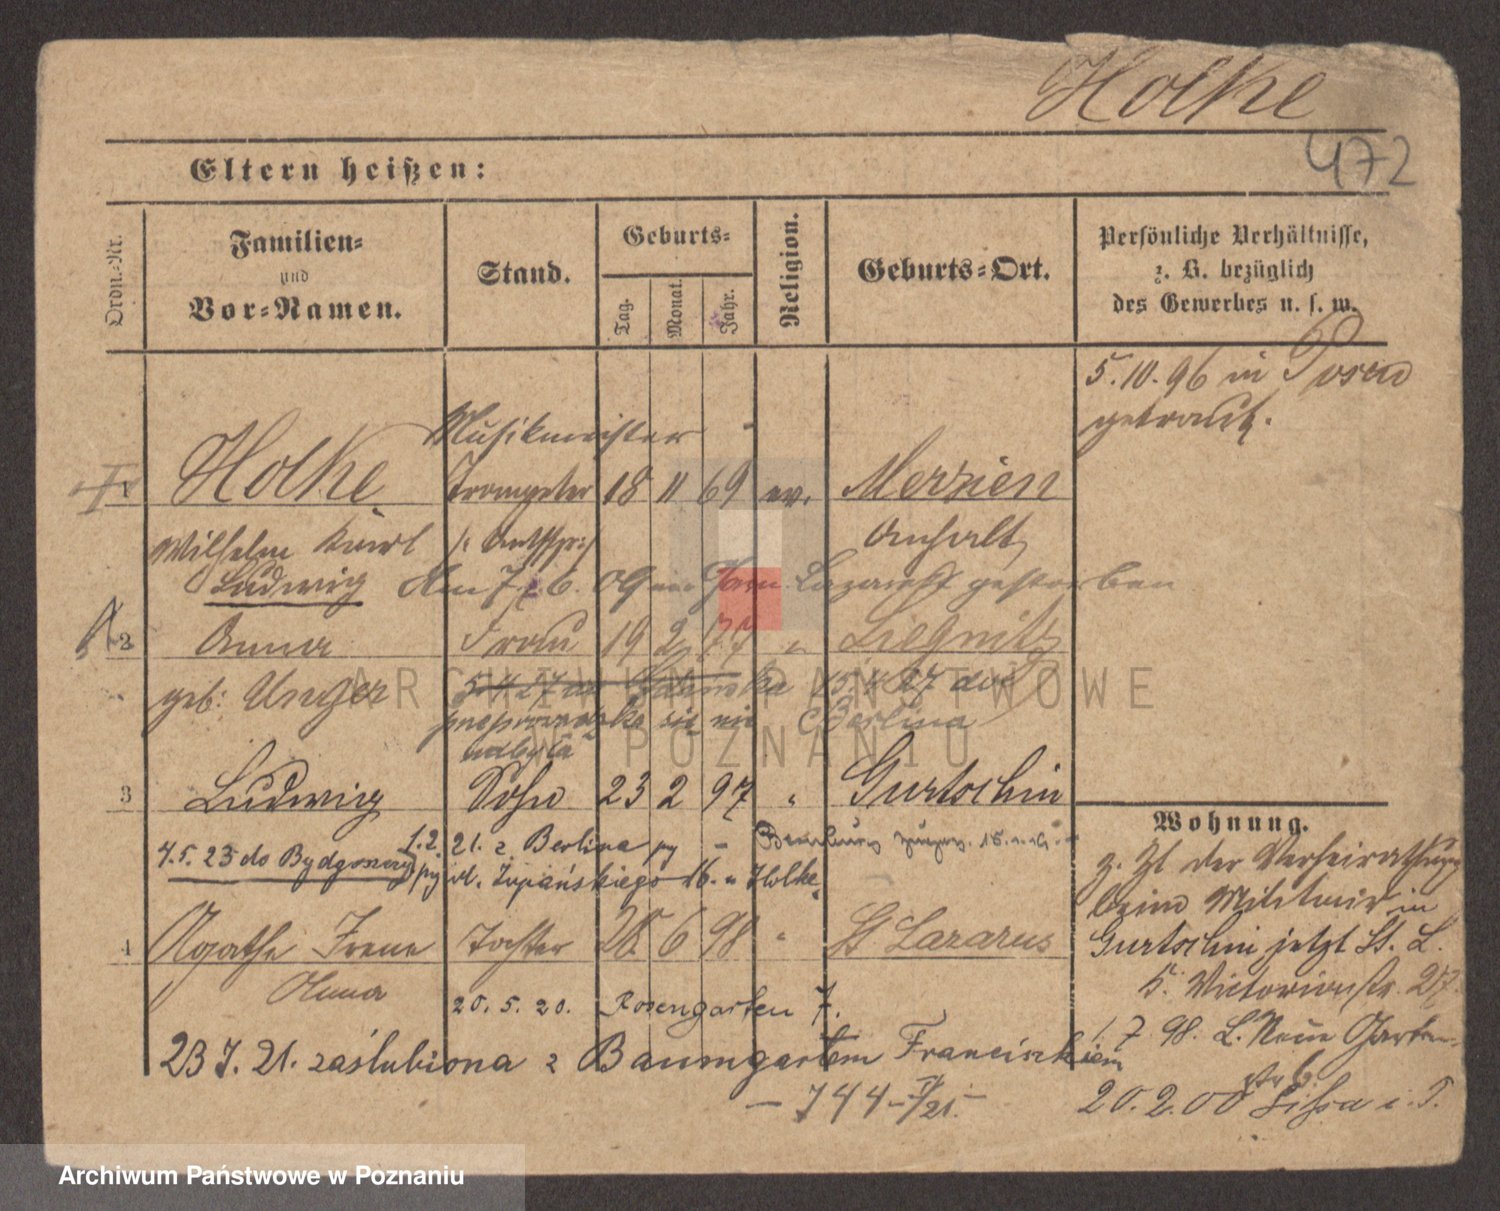 Holke
472
Eltern heißen:
Ordn.-Nr.
Familien-
und
Vor-Namen.
Stand.
Geburts-
Tag.
Monat.
Jahr.
Religion.
Geburts-Ort.
Persönliche Verhältnisse,
z. B. bezüglich
des Gewerbes u. s. w.
5.10.96 in Posen
getraut.
Musikmeister
1 Holke Trompeter 18 11 69 ev. Merzien
Wilhelm Karl Anhalt
Ludwig Am 7.6.09 im Lazarett gestorben
2 Anna Frau 19 2 75 " Liegnitz
geb: Unger 15.4.27 do
się Berlina
odbyła
3 Ludwig Sohn 23 2 97 " Gurtschin
4.5.23 do Bydgoszczy 1.2.21. z Berlina py - Bernburg zugez.
py ul. Żupańskiego 16. u Holke
4 Agathe Irene Tochter 28 6 98 " St Lazarus
Anna
20.5.20. Rosengarten 7.
23 7. 21. zaślubiona z Baumgartem Franciszkiem
- 744-V/21.-
Wohnung.
z. Zt. der Verheirathung
beim Militair in
Gurtschin, jetzt St. L.
Victoriastr. 27.
1.7 98. L. Neue Garten-
str 6.
20.2.00 Lissa i. P.
ARCHIWUM PAŃSTWOWE
W POZNANIU
Archiwum Państwowe w Poznaniu